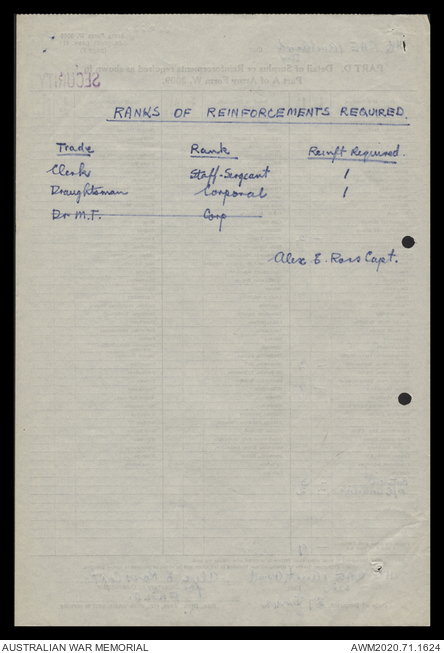 RANKS OF REINFORCEMENTS REQUIRED.
Trade Rank Reinft Required.
Clerk Staff-Sergeant 1
Draughtsman Corporal 1
Dr M.T. Corp
Alex E. Ross Capt.
SECURITY
PART D. Detail of Surplus or Reinforcements required as shown in
Part A of Army Form W. 3009.
AUSTRALIAN WAR MEMORIAL AWM2020.71.1624